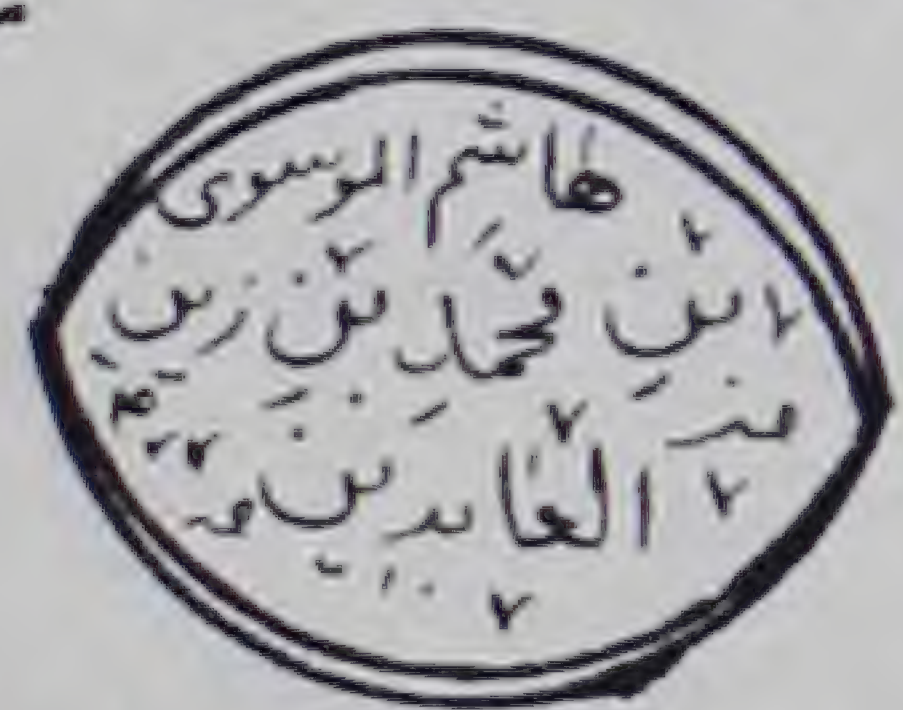 هاشم الموسوى
ابنِ محمدِ بنِ زينِ
العابدين